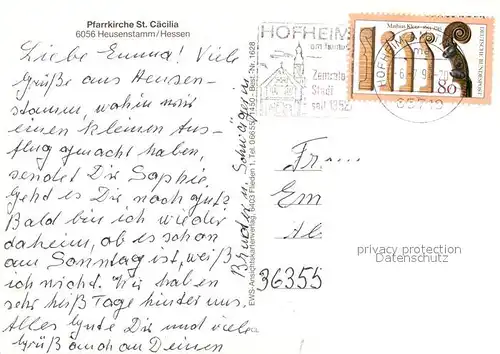 Pfarrkirche St. Cäcilia
6056 Heusenstamm/Hessen
Liebe Emma! Viele
Grüße aus Heusen-
stamm, wohin wir
einen kleinen Aus-
flug gemacht haben,
sendet Dir Sophie.
Geht es Dir noch gut?
Bald bin ich wieder
daheim, ob es schon
am Sonntag ist, weiß
ich nicht. Wir haben
sehr heiße Tage hinter uns.
Alles Gute Dir und viele
Grüß auch an Deinen
Bruder u. Schwägerin
EWS-Ansichtskartenverlag, 6403 Flieden 1, Tel. 06655/1450 - Best.-Nr. 1628
HOFHEIM
am Taunus
Zentrale
Stadt
seit 1352
HOFHEIM
65719
DEUTSCHE BUNDESPOST
80
Fr
Em
36355
privacy protection
Datenschutz